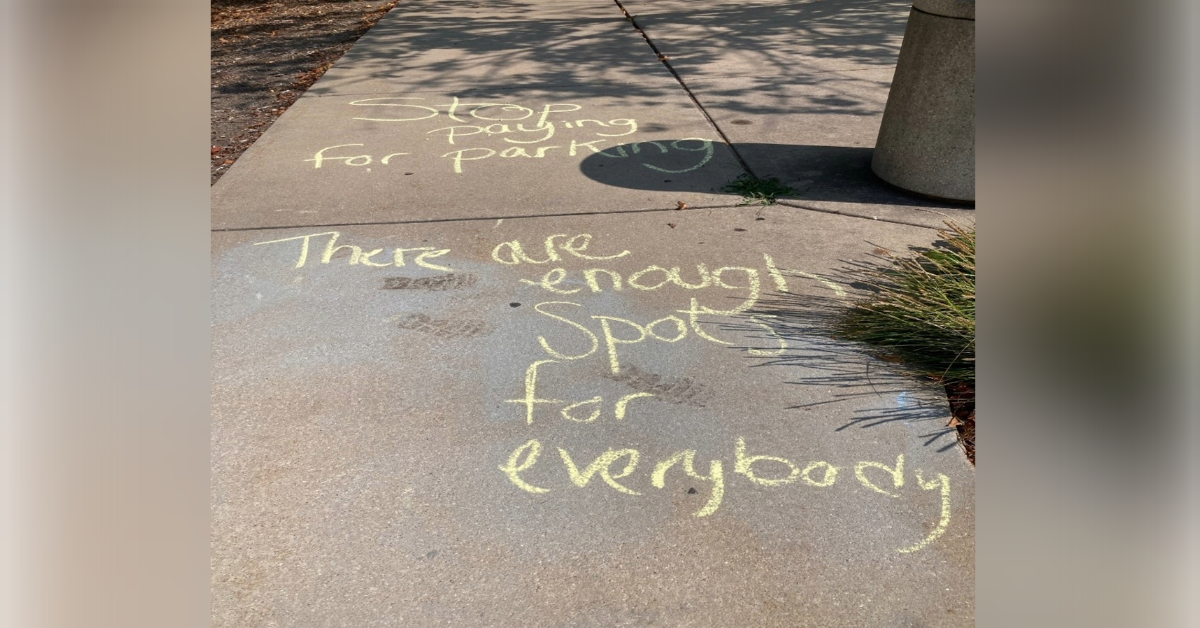 Stop
paying
for parking
There are
enough
Spots
for
everybody